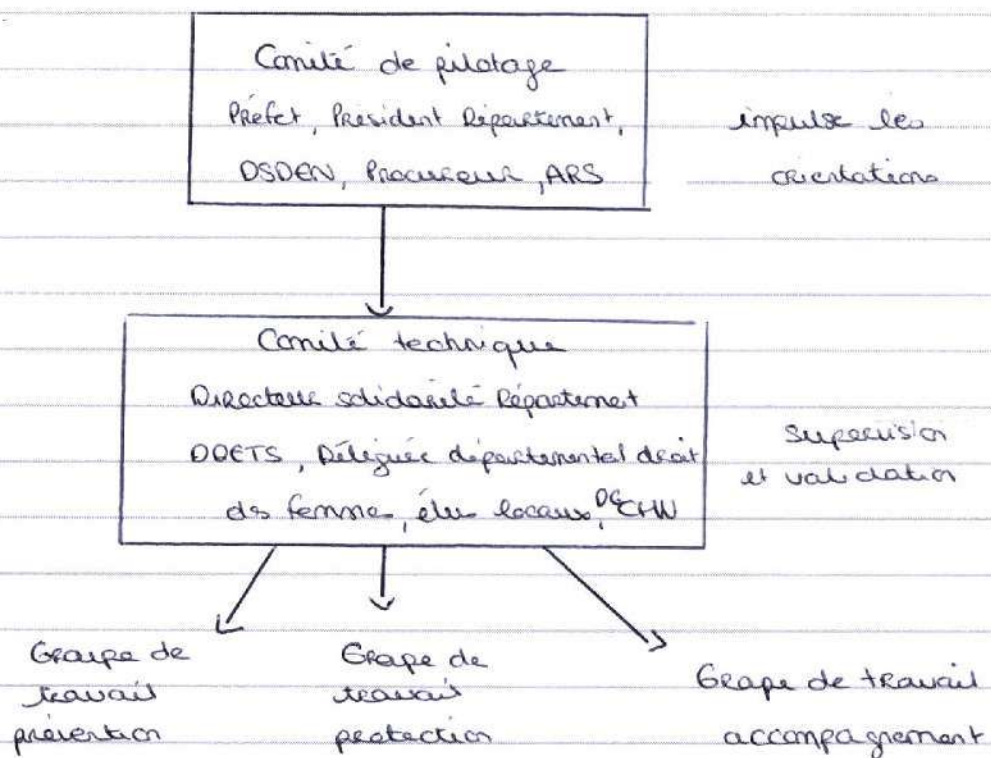 Comité de pilotage
Préfet, Président Département,
DSDEN, Procureur, ARS
impulse les
orientations
Comité technique
Directeur solidarité Département
DDETS, Déléguée départemental droit
des femmes, élus locaux, DG CHN
Supervision
et validation
Groupe de
travail
prévention
Groupe de
travail
protection
Groupe de travail
accompagnement